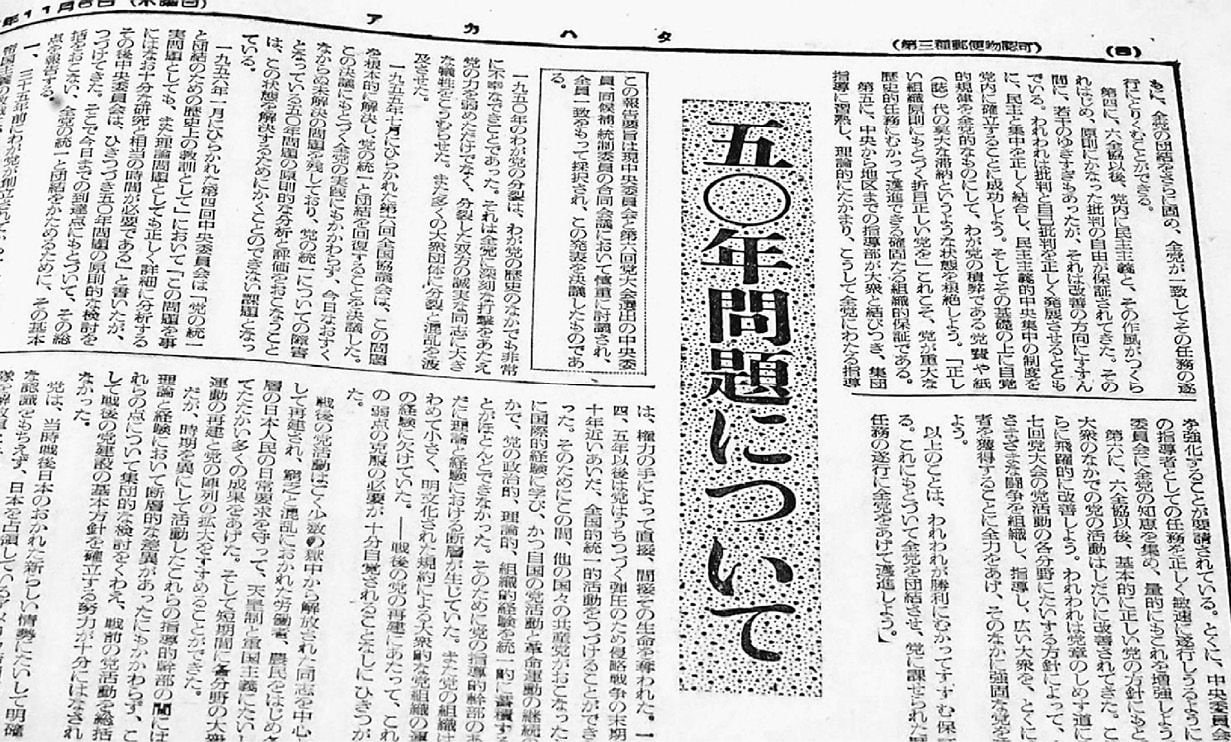 アカハタ
(第三種郵便物認可)
もに、全党の団結をさらに固め、全党が一致してその任務の遂
行にとりくむことができる。
第四に、六全協以後、党内に民主主義と、その作風がつくら
れはじめ、原則にかなった批判の自由が保証されてきた。その
間に、若干のゆきすぎもあったが、それは改善の方向にすすん
でいる。われわれは批判と自己批判を正しく発展させるととも
に、民主と集中を正しく結合し、民主主義的中央集中の制度を
党内に確立することに成功しよう。そしてその基礎の上に自覚
的規律を全党的なものにして、わが党の積弊である党費や紙
(誌)代の莫大な滞納というような状態を根絶しよう。「正し
い組織原則にもとづく折目正しい党を」これこそ、党が重大な
歴史的任務にむかって邁進できる確固たる組織的保証である。
第五に、中央から地区までの指導部が大衆と結びつき、集団
指導に習熟し、理論的にたかまり、こうして全党にわたる指導
を強化することが要請されている。とくに、中央委員会
の指導者としての任務を正しく敏速に遂行しうるように
委員会に全党の知恵を集め、量的にもこれを増強しよう
第六に、六全協以後、基本的に正しい党の方針にもと
大衆のなかでの党の活動はしだいに改善されてきた。こ
らに飛躍的に改善しよう。われわれは党章のしめす道に
七回党大会の党活動の各分野にたいする方針によって、
さまざまな闘争を組織し、指導し、広い大衆を、とくに
者を獲得することに全力をあげ、そのなかに強固な党を
よう。
以上のことは、われわれが勝利にむかってすすむ保
る。これにもとづいて全党を団結させ、党に課せられた
任務の遂行に全党をあげて邁進しよう。
五〇年問題について
この報告要旨は現中央委員会と第六回党大会選出の中央委
員、同候補、統制委員の合同会議において慎重に討議され、
全員一致をもって採択され、この発表を決議したものであ
る。
一九五〇年のわが党の分裂は、わが党の歴史のなかでも非常
に不幸なできごとであった。それは全党に深刻な打撃をあたえ
党の力を弱めただけでなく、分裂した双方の誠実な同志に大き
な犠牲をこうむらせた。また多くの大衆団体に分裂と混乱を波
及させた。
一九五五年七月にひらかれた第六回全国協議会は、この問題
を根本的に解決し、党の統一と団結を回復することを決議した。
この決議にもとづく全党の実践にもかかわらず、今日なお少く
なからぬ未解決の問題を残しており、党の統一についての障害
となっている五〇年問題の原則的な分析と評価をおこなうこと
は、この状態を解決するためにかくことのできない課題となっ
ている。
一九五六年一月にひらかれた第四回中央委員会は「党の統一
と団結のための歴史上の教訓として」において「この問題を事
実問題としても、また理論問題としても正しく詳細に分析する
にはなお十分な研究と相当の時間が必要である」と書いたが、
その後中央委員会は、ひきつづき五〇年問題の原則的な検討を
つづけてきた。そこで今日までの到達点にもとづいて、その総
括をおこない、全党の統一と団結をかためるために、その基本
点を報告する。
一、三十五年前にわが党が創立されて
は、権力の手によって直接、間接その生命を奪われた。一
四、五年以後は党はうちつづく弾圧のため侵略戦争の末期
十年近いあいだ、全国的統一的活動をつづけることができ
った。そのためにこの間、他の国々の共産党がおこなった
に国際的経験に学び、かつ自国の党活動と革命運動の継続の
かで、党の政治的、理論的、組織的経験を統一的に蓄積する
とがほとんどできなかった。そのために党の指導的幹部のあ
だに理論と経験における断層が生じていた。また党の組織は
わめて小さく、明文化された規約による大衆的な党組織の運
の経験にかけていた。――戦後の党の再建にあたって、これ
の弱点の克服の必要が十分自覚されることなしにひきつが
た。
戦後の党活動はごく少数の獄中から解放された同志を中心
して再建され、窮乏と混乱におかれた労働者、農民をはじめ各
層の日本人民の日常要求を守って、天皇制と軍国主義にたい
てたたかい多くの成果をあげた。そして短期間に各分野の大衆
運動の再建と党の陣列の拡大をすすめることができた。
だが、時期を異にして活動したこれらの指導的幹部の間には
理論と経験において断層的な差異があったにもかかわらず、こ
れらの点について集団的な検討をくわえ、戦前の党活動を総括
して戦後の党建設の基本方針を確立する努力が十分にはなされ
なかった。
党は、当時戦後日本のおかれた新らしい情勢にたいして明確
な認識をもちえず、日本を占領している